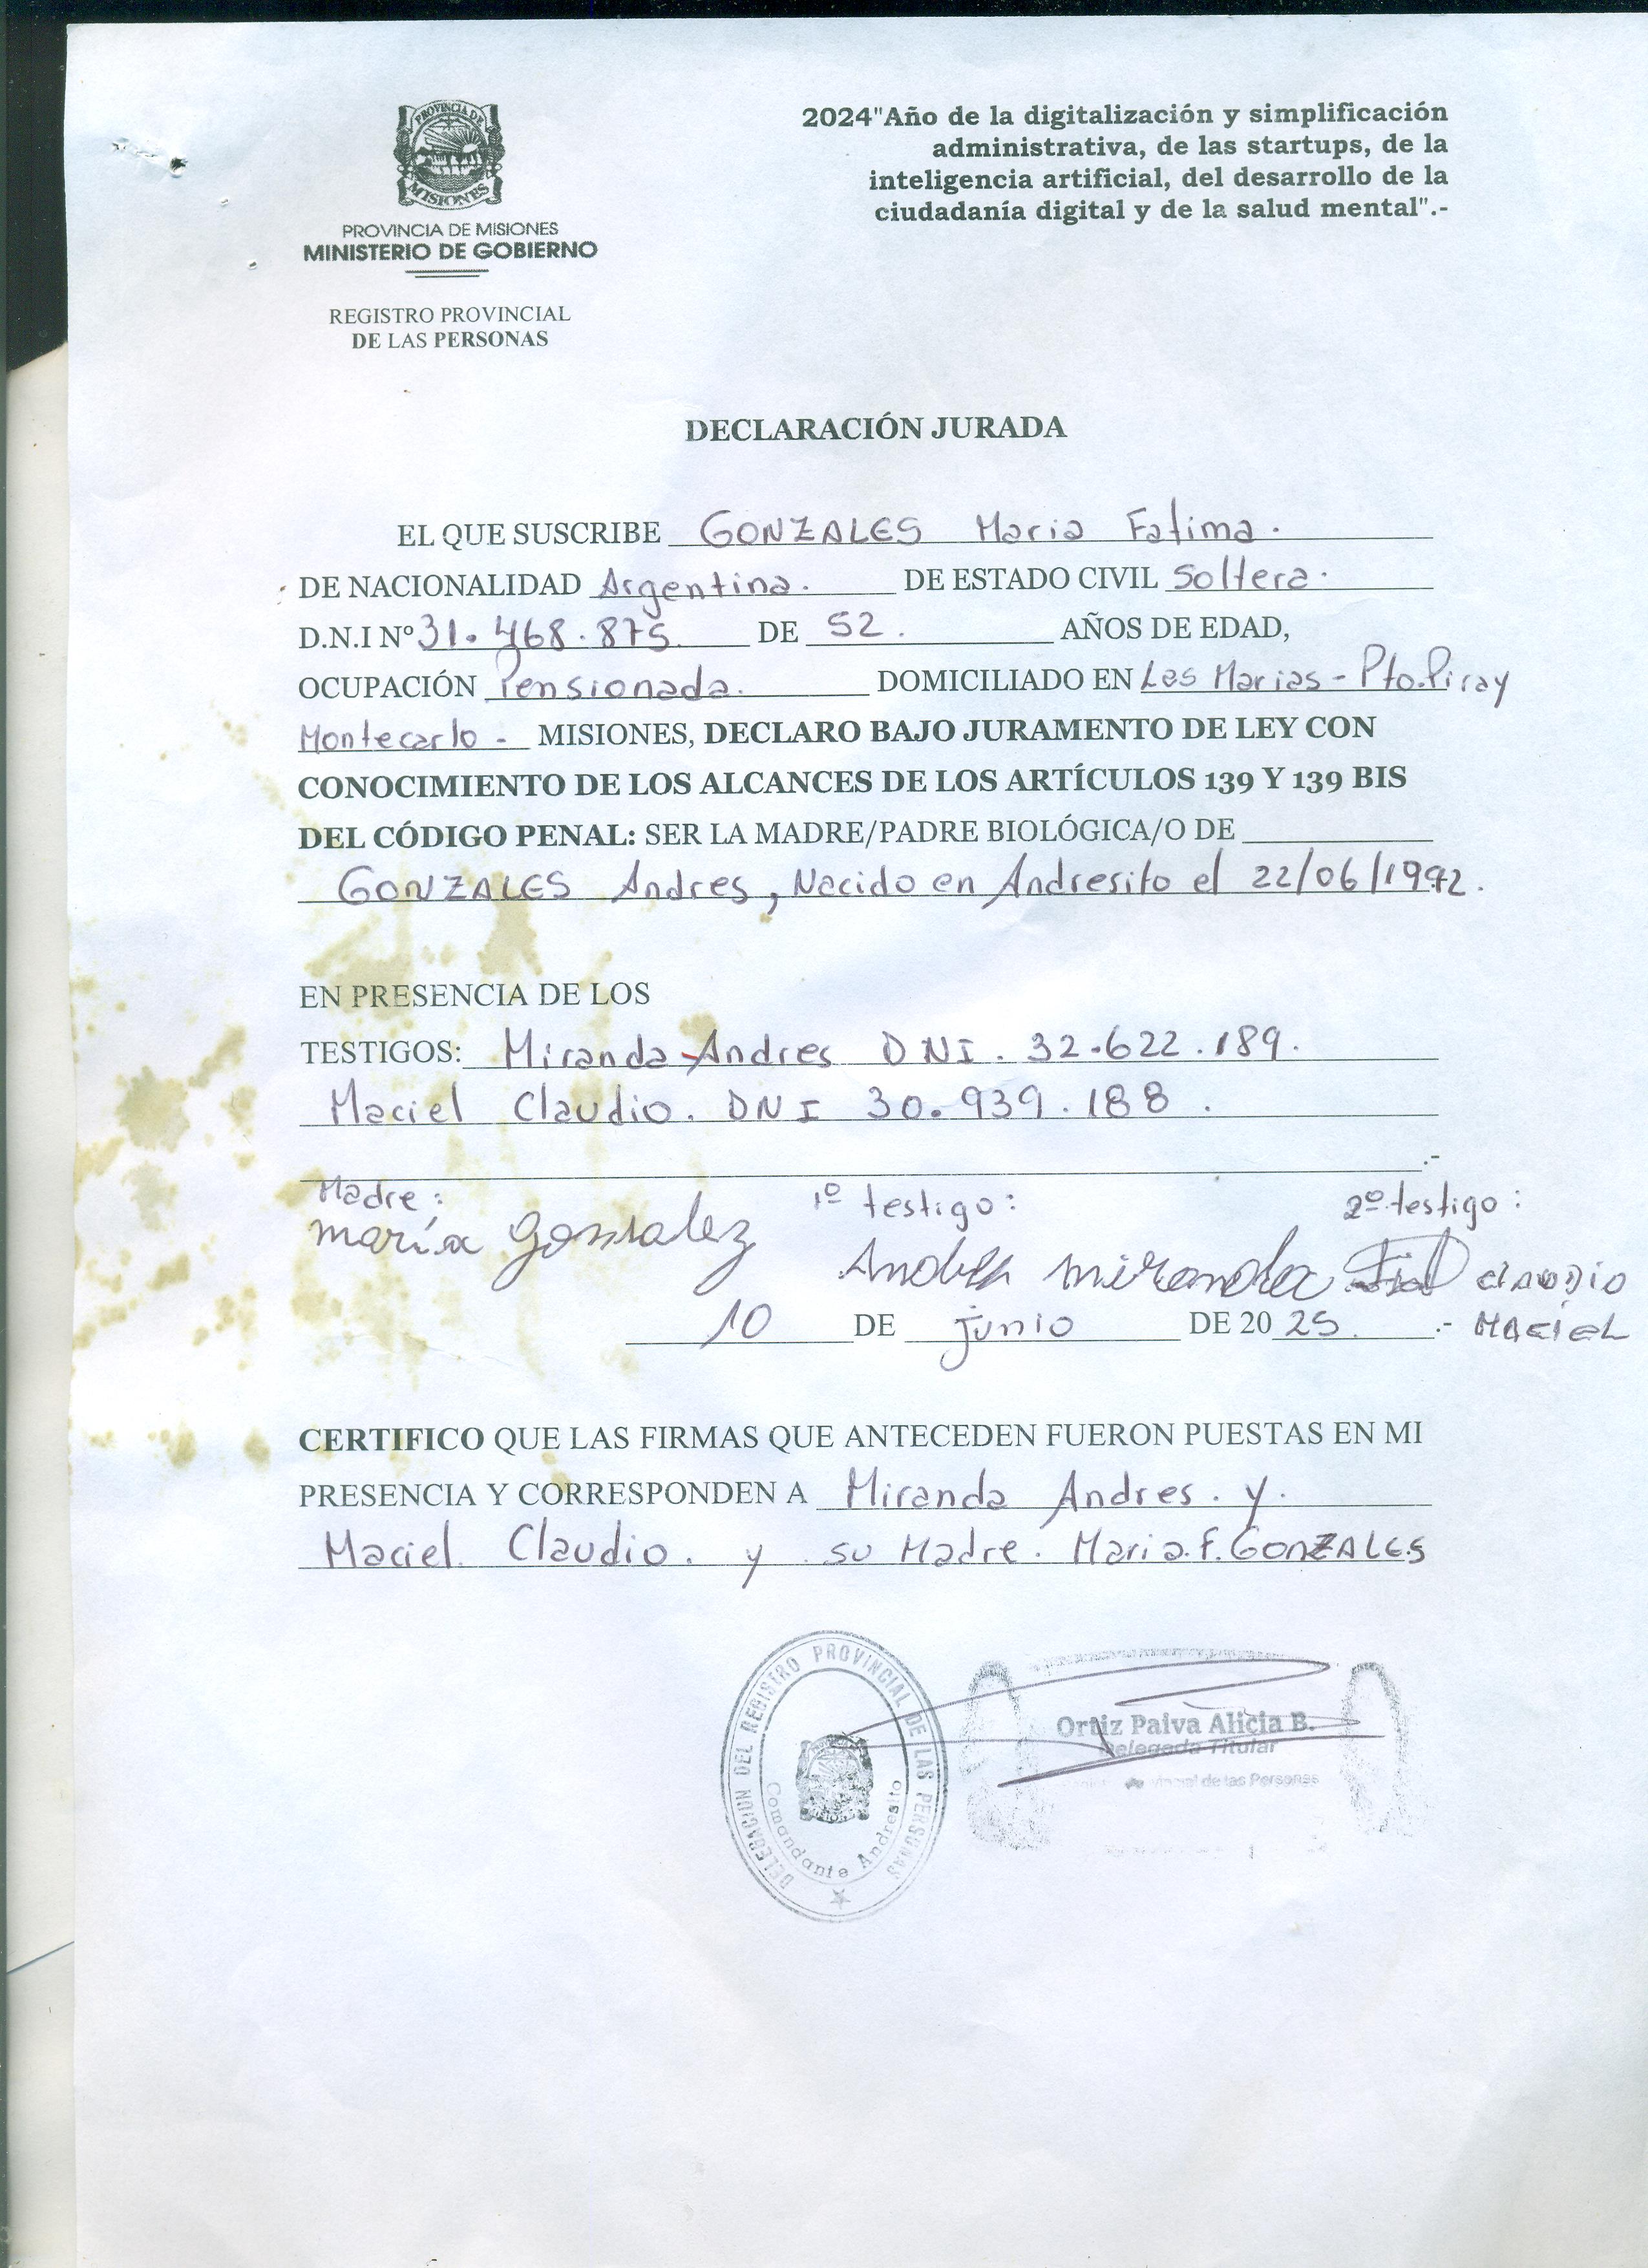 PROVINCIA DE
MISIONES
PROVINCIA DE MISIONES
MINISTERIO DE GOBIERNO
REGISTRO PROVINCIAL
DE LAS PERSONAS
2024"Año de la digitalización y simplificación
administrativa, de las startups, de la
inteligencia artificial, del desarrollo de la
ciudadanía digital y de la salud mental".-
DECLARACIÓN JURADA
EL QUE SUSCRIBE GONZALES Maria Fatima.
DE NACIONALIDAD Argentina. DE ESTADO CIVIL Soltera.
D.N.I Nº 31.468.875 DE 52. AÑOS DE EDAD,
OCUPACIÓN Pensionada. DOMICILIADO EN Las Marias - Pto. Piray
Montecarlo - MISIONES, DECLARO BAJO JURAMENTO DE LEY CON
CONOCIMIENTO DE LOS ALCANCES DE LOS ARTÍCULOS 139 Y 139 BIS
DEL CÓDIGO PENAL: SER LA MADRE/PADRE BIOLÓGICA/O DE
GONZALES Andres, Nacido en Andresito el 22/06/1992.
EN PRESENCIA DE LOS
TESTIGOS: Miranda Andres DNI. 32.622.189.
Maciel Claudio. DNI 30.939.188.
.-
Madre: 1º testigo: 2º testigo:
maría gonzalez Andres miranda claudio
10 DE junio DE 20 25. .- MACIEL
CERTIFICO QUE LAS FIRMAS QUE ANTECEDEN FUERON PUESTAS EN MI
PRESENCIA Y CORRESPONDEN A Miranda Andres. y.
Maciel Claudio. y su Madre. Maria.F.GONZALES
DELEGACION DEL REGISTRO PROVINCIAL DE LAS PERSONAS
Comandante Andresito
Ortiz Paiva Alicia B.
Delegada Titular
de las Personas